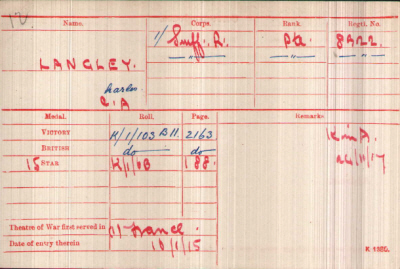 Name. Corps. Rank. Regtl. No.
1/ Suff. R. Pte 8922.
LANGLEY. — " — — " —
harles
C. A
Medal. Roll. Page. Remarks.
VICTORY K/1/103 B11. 2163 K in A.
BRITISH do do
15 STAR K/1/6B 188.
Theatre of War first served in (1) France.
Date of entry therein 10/1/15
K 1380.